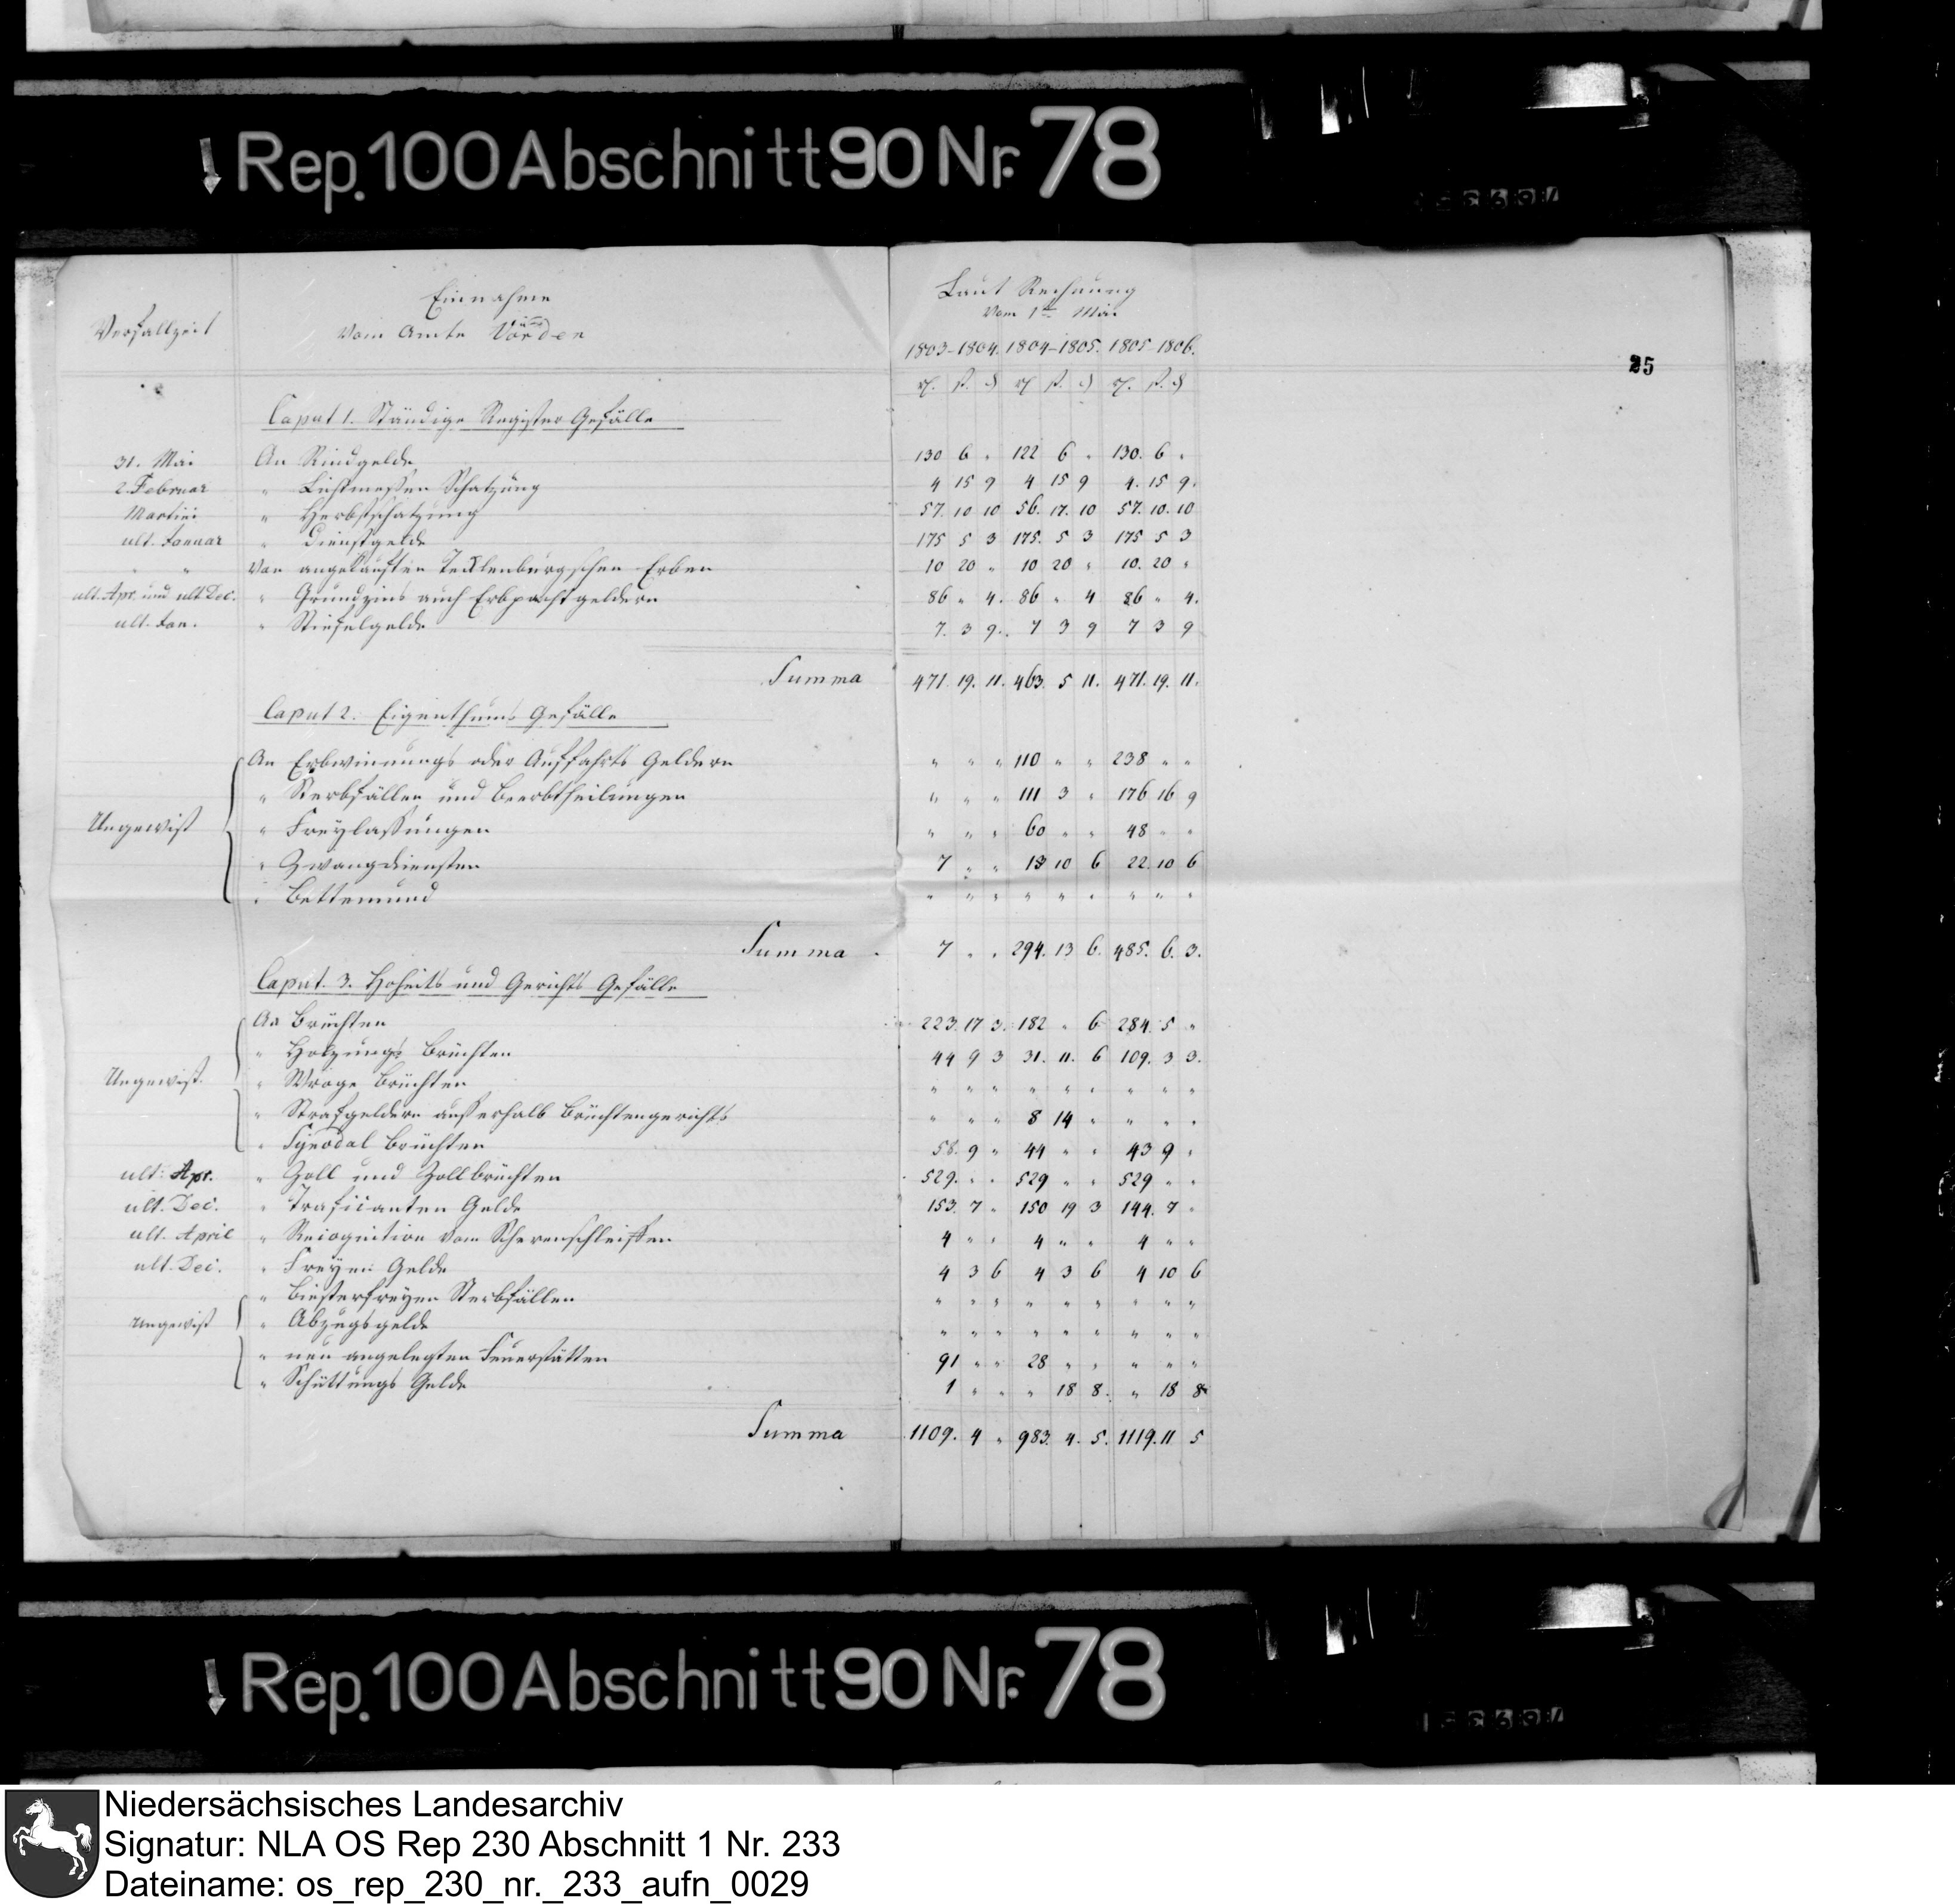 Rep. 100 Abschnitt 90 Nr. 78
25
Verfallzeit
Einnahme
vom Amte Vörden
Laut Rechnung
vom 1ten Mai
1803-1804. 1804-1805. 1805-1806.
Caput 1. Ständige Register Gefälle
31. Mai An Rindgelde 130 6 " 122 6 " 130. 6 "
2. Februar " Lichtmessen Schatzüng 4 15 9 4 15 9 4. 15 9.
Martini " Herbstschatzung 57. 10 10 56. 17. 10 57. 10. 10
ult. Januar " Dienstgelde 175 5 3 175. 5 3 175 5 3
" " Von angekauften Tecklenburgschen Erben 10 20 " 10 20 " 10. 20 "
ult. Apr. und ult Dec. " Grundzins auch Erbpachtgeldern 86 " 4. 86 " 4 86 " 4.
ult. Jan. " Stiefelgelde 7. 3 9. 7 3 9 7 3 9
Summa 471. 19. 11. 463. 5 11. 471. 19. 11.
Caput 2. Eigenthums Gefälle
An Erbwinnungs oder Auffahrts Geldern " " " 110 " " 238 " "
" Sterbfällen und Beerbtheilungen " " " 111 3 " 176 16 9
Ungewiß " Freylassungen " " " 60 " " 48 " "
" Zwangdiensten 7 " " 13 10 6 22. 10 6
" Bettemund " " " " " " " " "
Summa 7 " " 294. 13 6. 485. 6. 3.
Caput. 3. Hoheits und Gerichts Gefälle
An Brüchten 223. 17 3. 182 " 6 284. 5 "
" Holzungs Brüchten 44 9 3 31. 11. 6 109. 3 3.
Ungewiß. " Wroge Brüchten " " " " " " " " "
" Strafgeldern ausserhalb Brüchtengerichts " " " 8 14 " " " "
" Synodal Brüchten 58. 9 " 44 " " 43 9 "
ult: Apr. " Zoll und Zollbrüchten 529. " " 529 " " 529 " "
ult. Dec. " Traficanten Gelde 153. 7 " 150 19 3 144. 7 "
ult. April " Recognition vom Scherenschleiffen 4 " " 4 " " 4 " "
ult. Dec. " Freyen Gelde 4 3 6 4 3 6 4 10 6
" Biesterfreyen Sterbfällen " " " " " " " " "
Ungewiß " Abzugsgelde " " " " " " " " "
" neu angelegten Feuerstätten 91 " " 28 " " " " "
" Schüttungs Gelde 1 " " " 18 8. " 18 8
Summa 1109. 4 " 983. 4. 5. 1119. 11 5
Rep. 100 Abschnitt 90 Nr. 78
Niedersächsisches Landesarchiv
Signatur: NLA OS Rep 230 Abschnitt 1 Nr. 233
Dateiname: os_rep_230_nr._233_aufn_0029